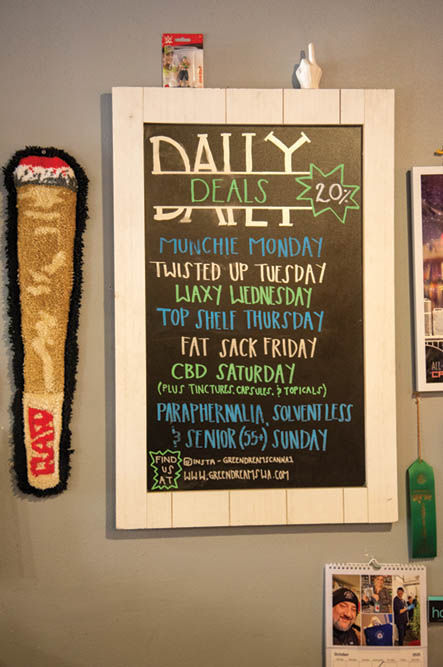 DAILY
DEALS
20%
MUNCHIE MONDAY
TWISTED UP TUESDAY
WAXY WEDNESDAY
TOP SHELF THURSDAY
FAT SACK FRIDAY
CBD SATURDAY
(PLUS TINCTURES, CAPSULES, & TOPICALS)
PARAPHERNALIA, SOLVENTLESS
& SENIOR (55+) SUNDAY
FIND
US
AT
INSTA - GREENDREAMSCANNA1
WWW.GREENDREAMSWA.COM
RAW
October